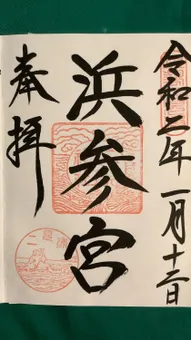 令和二年一月十二日
浜参宮
奉拝